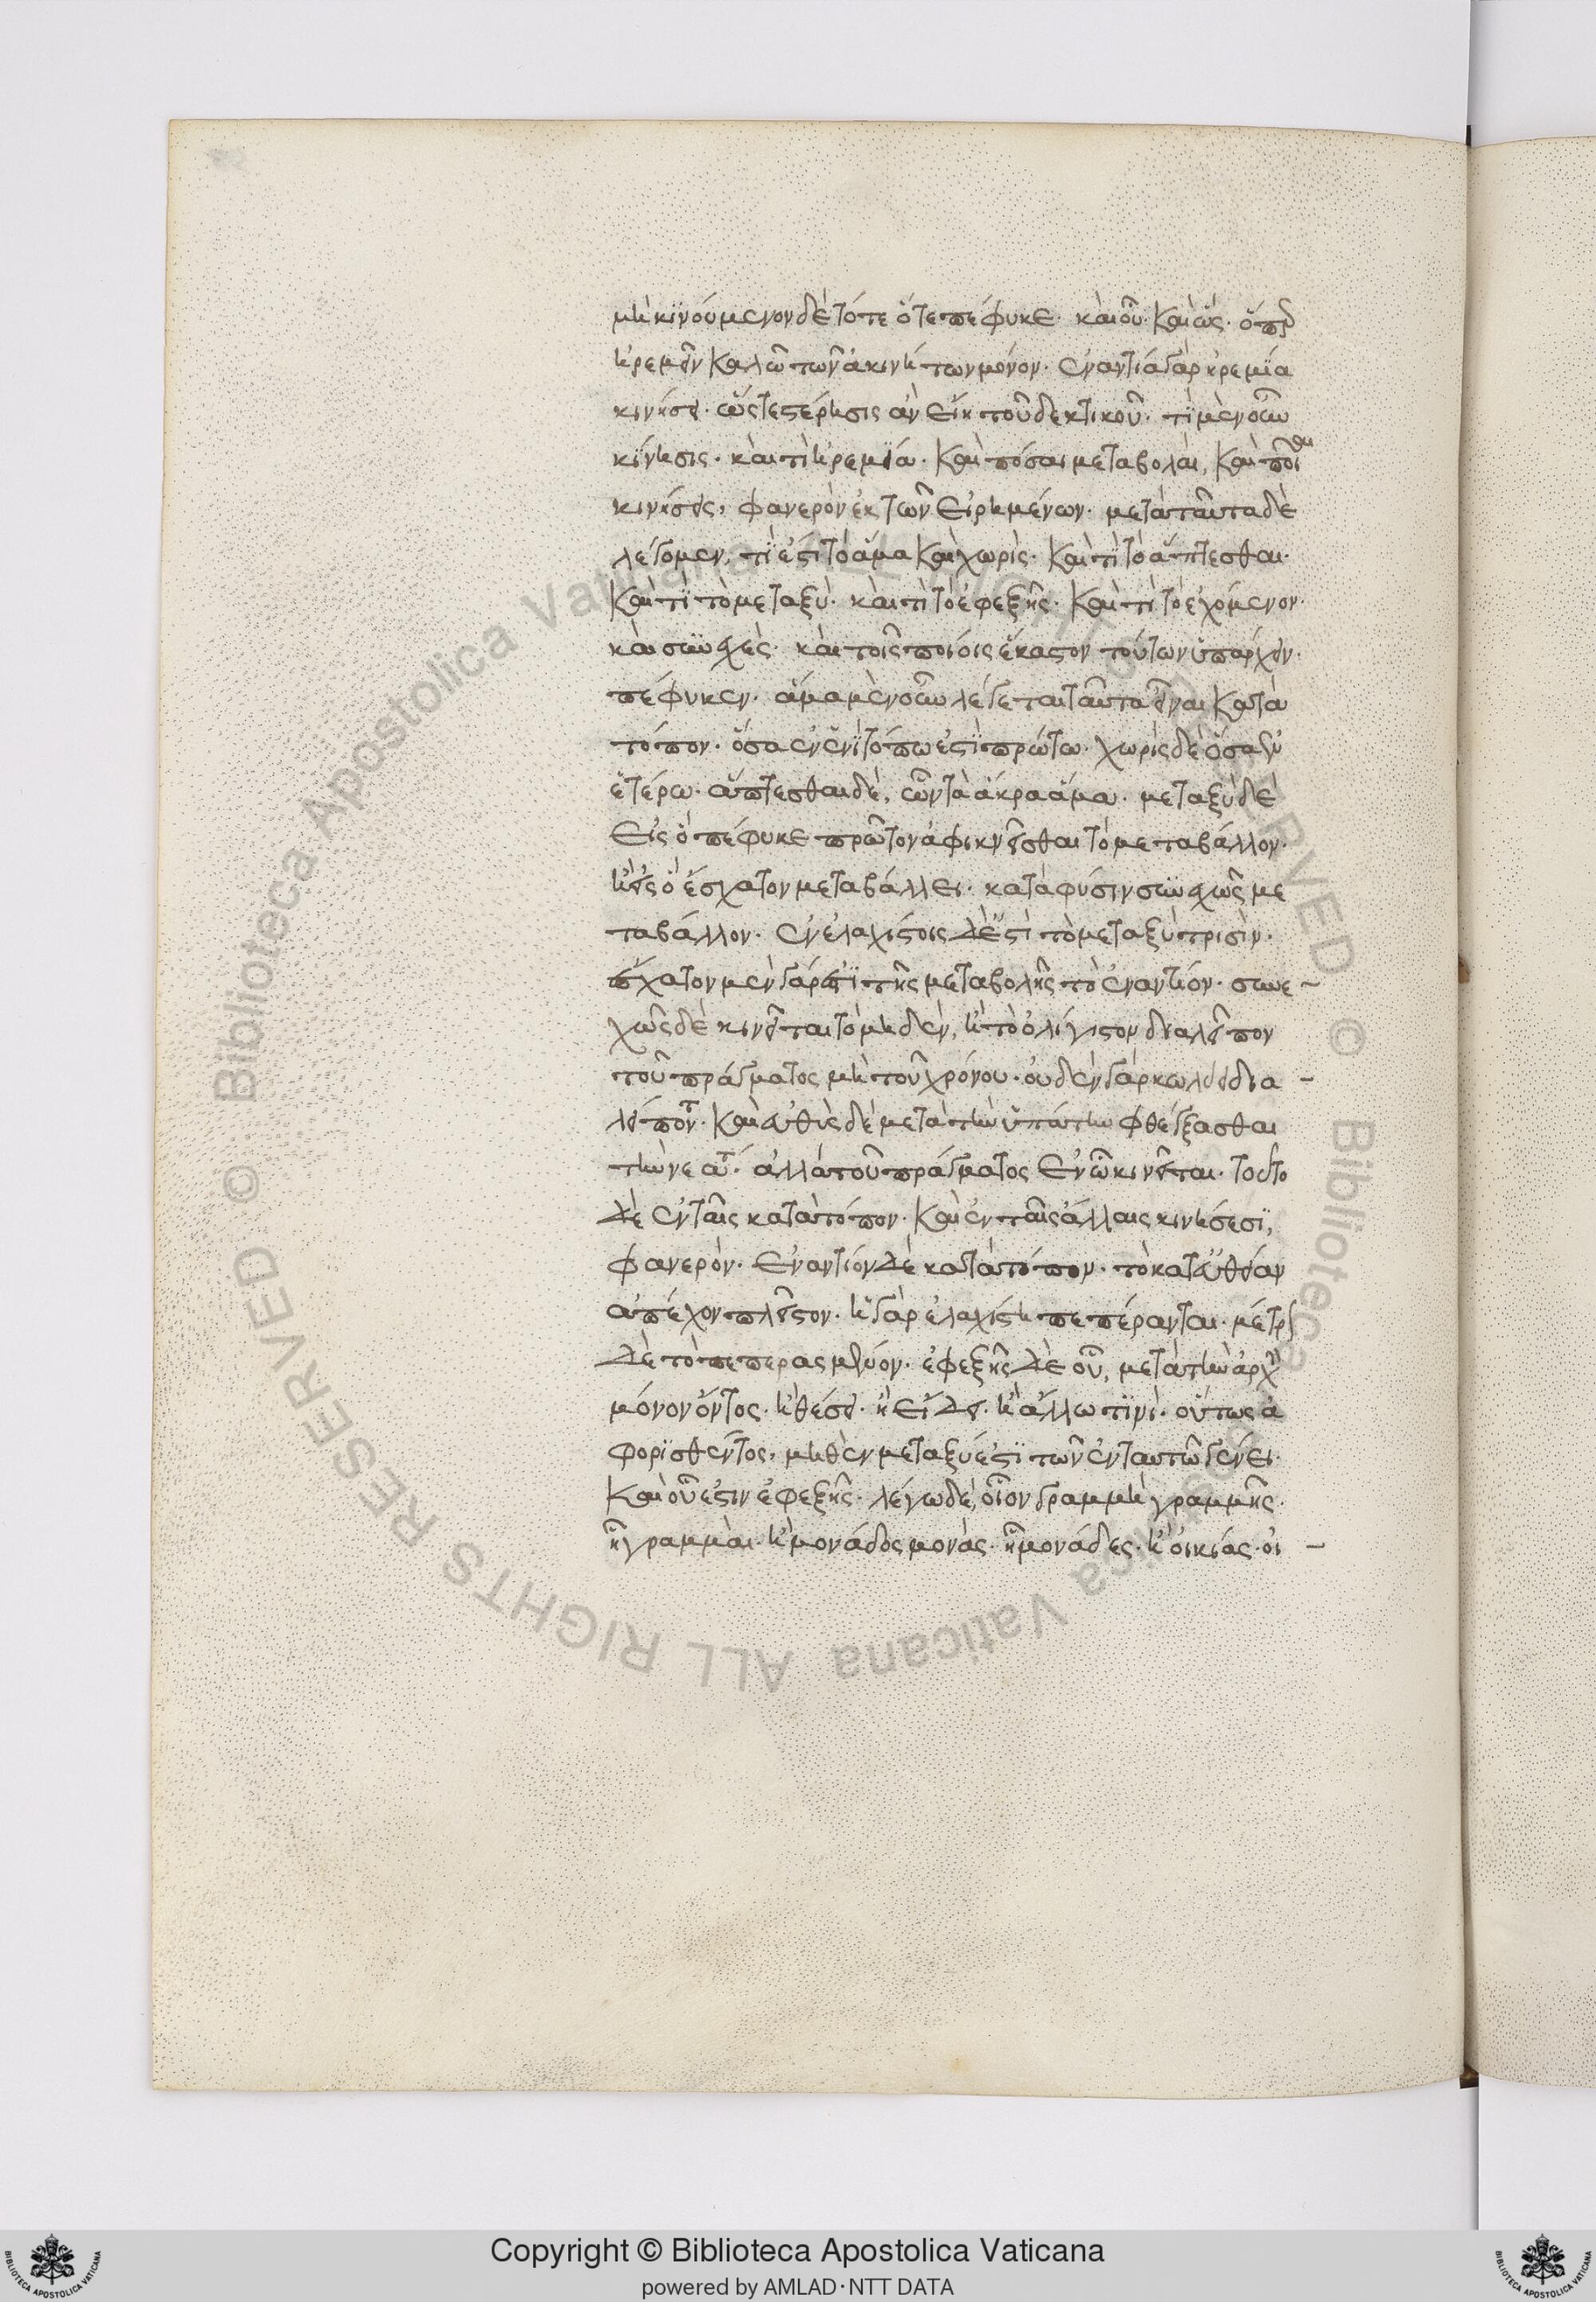 μὴ κϊνούμενον δὲ τότε ὅτε πέφυκε· καὶ οὗ· καὶ ὥς· ὅπερ
ἠρεμεῖν καλῶ τῶν ἀκινήτων μόνον· ἐναντία γὰρ ἠρεμϊα
κινήσει· ὥστε στέρησις ἂν εἴη τοῦ δεκτικοῦ· τὶ μὲν οὖν
κίνησις· καὶ τὶ ἠρεμϊα· καὶ πόσαι μεταβολαὶ, καὶ ποῖαι
κινήσεις, φανερὸν ἐκ τῶν εἰρημένων· μετὰ ταῦτα δὲ
λέγομεν, τὶ ἐστὶ τὸ ἅμα καὶ χωρὶς· καὶ τὶ τὸ ἅπτεσθαι·
καὶ τὶ τὸ μεταξὺ· καὶ τὶ τὸ ἐφεξῆς· καὶ τὶ τὸ ἐχόμενον·
καὶ συνεχὲς· καὶ τοῖς ποίοις ἕκαστον τούτων ὑπάρχειν·
πέφυκεν· ἅμα μὲν οὖν λέγεται ταῦτα εἶναι κατὰ
τόπον· ὅσα ἐν ἑνὶ τόπω ἐστὶ πρώτω· χωρὶς δὲ ὅσα ἐν
ἑτέρω· ἅπτεσθαι δὲ, ὧν τὰ ἄκρα ἅμα· μεταξὺ δὲ
εἰς ὃ πέφυκε πρῶτον ἀφικνεῖσθαι τὸ μεταβάλλον·
ἢ εἰς ὃ ἔσχατον μεταβάλλει· κατὰ φύσιν συνεχῶς με
ταβάλλον· ἐν ἐλαχίστοις δὲ ἐστὶ τὸ μεταξὺ τρισὶν·
ἔσχατον μὲν γάρ ἐστι τῆς μεταβολῆς τὸ ἐναντίον· συνε~
χῶς δὲ κινεῖται τὸ μηδὲν, ἢ τὸ ὀλίγιστον διαλεῖπον
τοῦ πράγματος μὴ τοῦ χρόνου· οὐδὲν γὰρ κωλύει δια –
λείποντ· καὶ εὐθὺς δὲ μετὰ τὴν ὑπάτην φθέγξασθαι
τὴν νεατ· ἀλλὰ τοῦ πράγματος ἐν ὧ κινεῖται· τοῦτο
δὲ ἐν ταῖς κατὰ τόπον· καὶ ἐν ταῖς ἄλλαις κινήσεσϊ,
φανερὸν· ἐναντίον δὲ κατὰ τόπον· τὸ κατ' εὐθεῖαν
ἀπέχον πλεῖστον· ἡ γὰρ ἐλαχίστη πεπέρανται· μέτρον
δὲ τὸ πεπερασμένον· ἐφεξῆς δὲ οὗ, μετὰ τὴν ἀρχὴν
μόνον ὄντος· ἢ θέσει· ἢ εἴδει· ἢ ἄλλω τϊνὶ· οὕτως ἀ
φορϊσθέντος, μηθὲν μεταξύ ἐστι τῶν ἐν ταυτῶ γένει·
καὶ οὗ ἐστιν ἐφεξῆς· λέγω δὲ, οἷον γραμμὴ γραμμῆς·
ἢ γραμμαὶ· ἢ μονάδος μονὰς· ἢ μονάδες· ἢ οἰκίας· οἰ –
Copyright © Biblioteca Apostolica Vaticana
powered by AMLAD·NTT DATA
© Biblioteca Apostolica Vaticana ALL RIGHTS RESERVED © Biblioteca Apostolica Vaticana ALL RIGHTS RESERVED